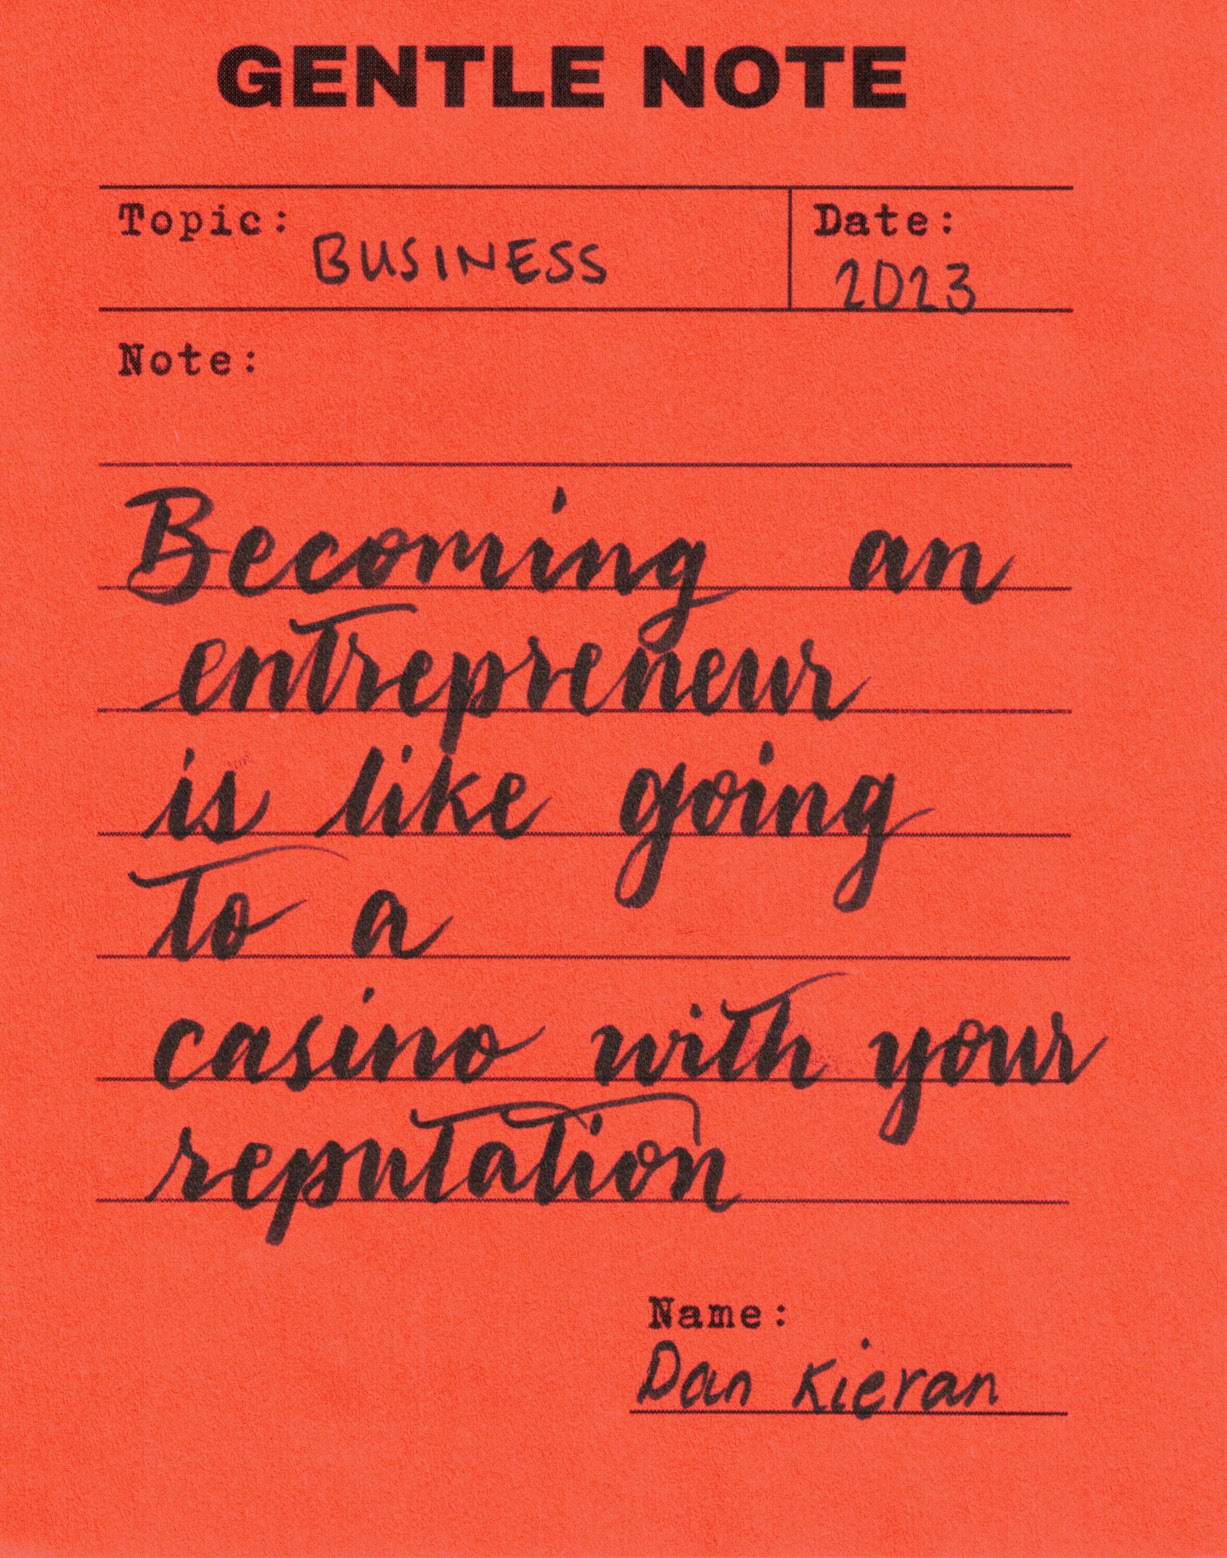 GENTLE NOTE
Topic: BUSINESS
Date: 2023
Note:
Becoming an
entrepreneur
is like going
to a
casino with your
reputation
Name:
Dan Kieran